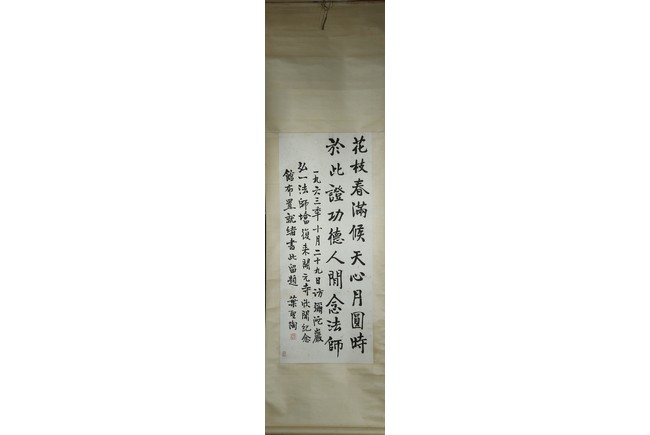 花枝春滿候天心月圓時
於此證功德人間念法師
一九六三年十月二十九日訪彌陀巖
弘一法師塔復來開元寺欣聞紀念
館布置就緒書此留題 葉聖陶